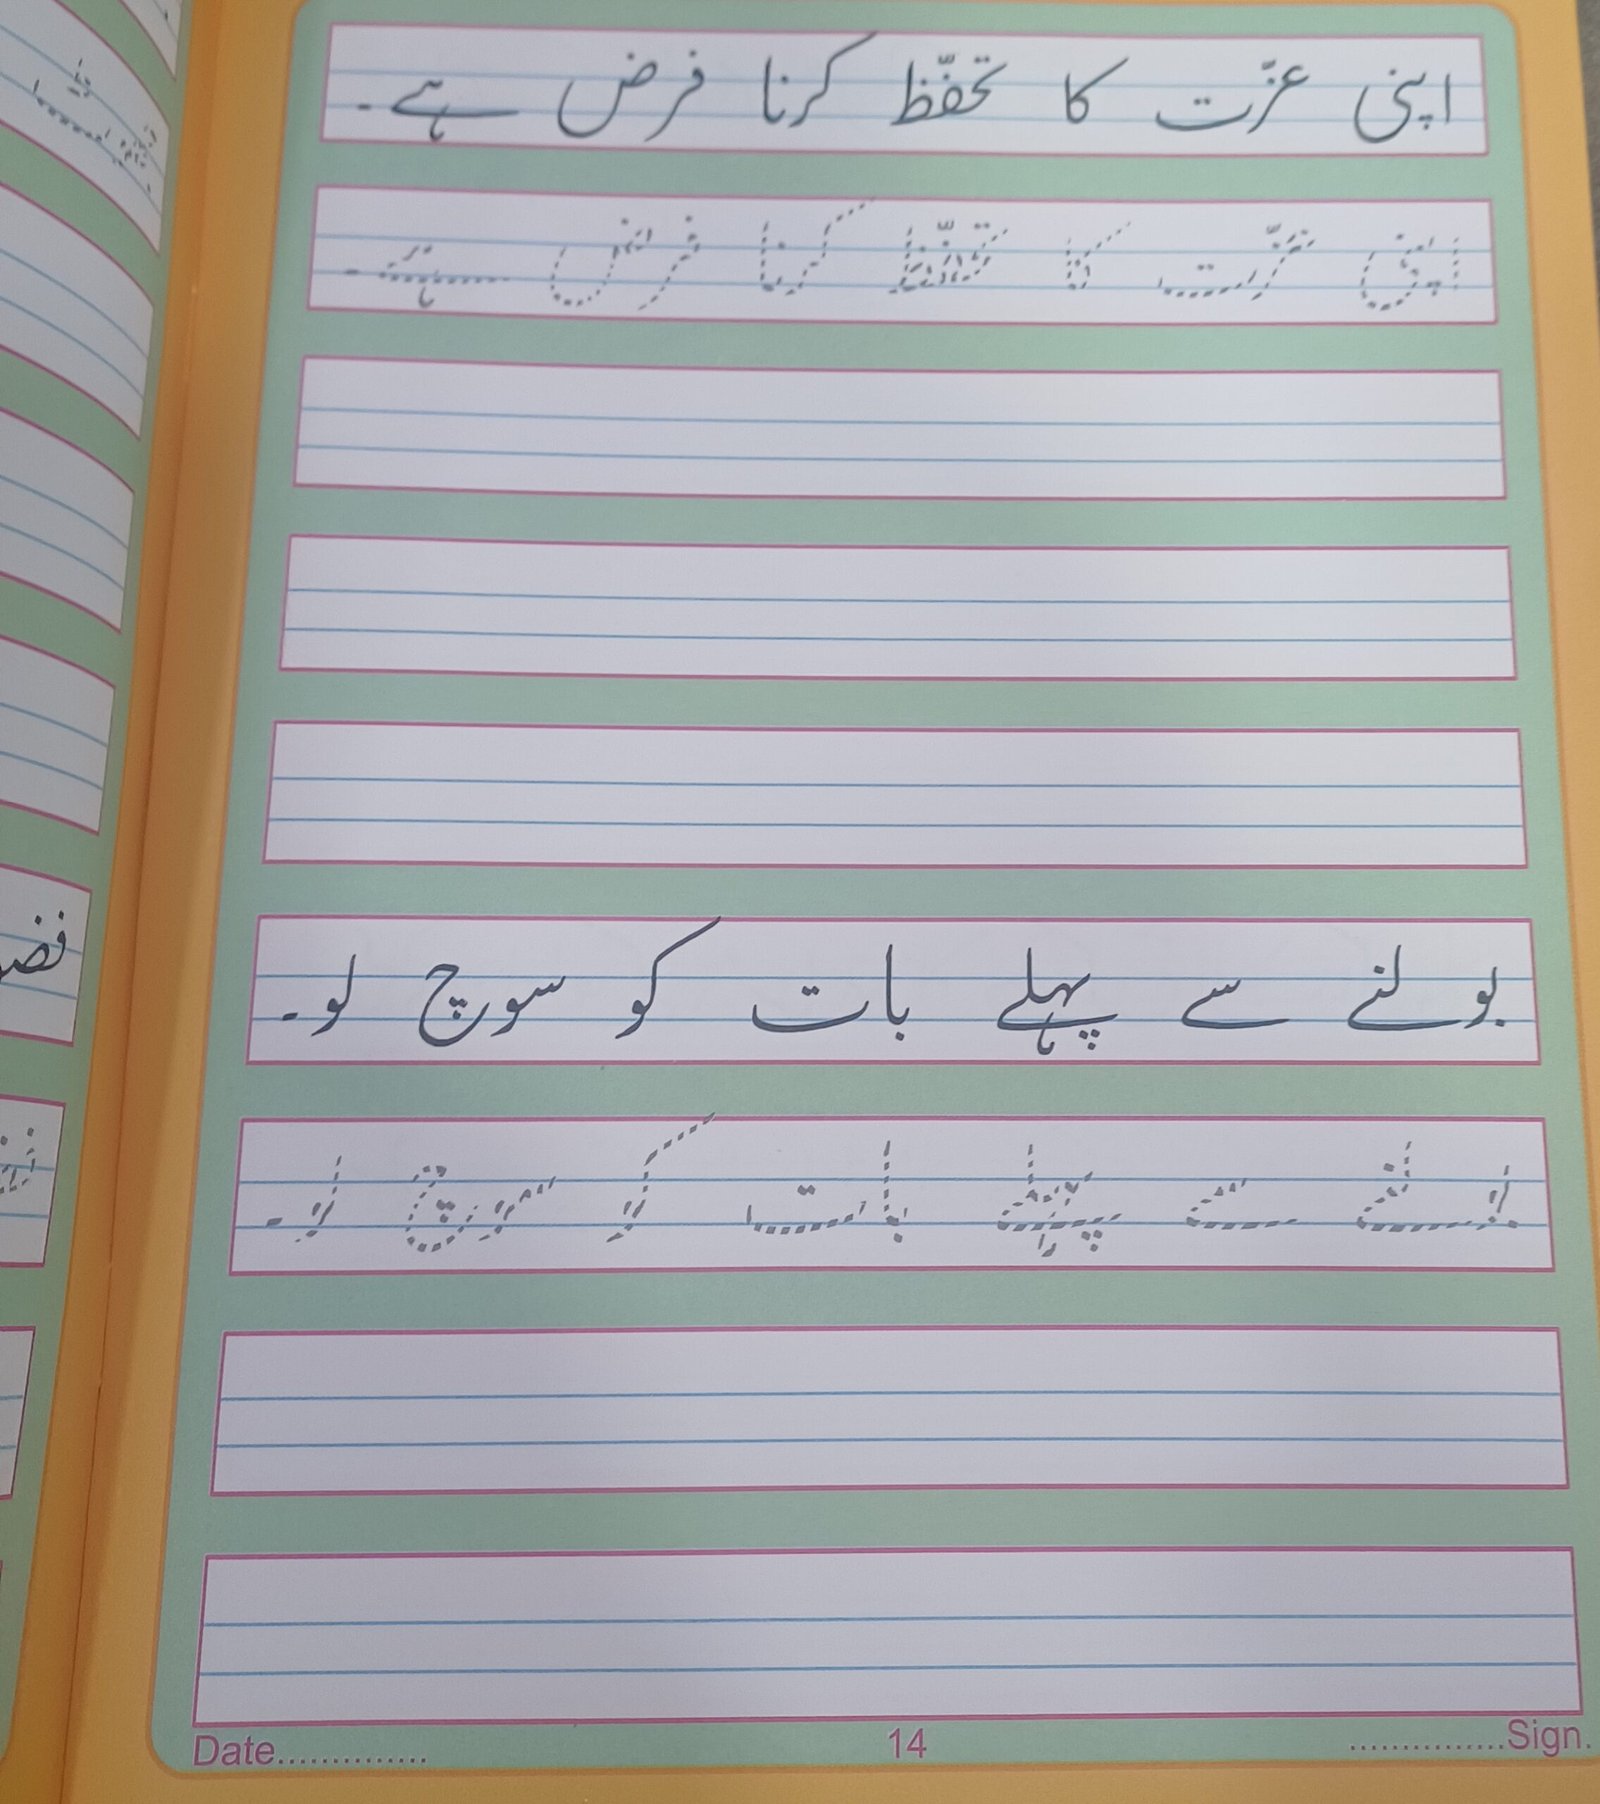 اپنی عزّت کا تحفّظ کرنا فرض ہے۔
اپنی عزّت کا تحفّظ کرنا فرض ہے۔
بولنے سے پہلے بات کو سوچ لو۔
بولنے سے پہلے بات کو سوچ لو۔
Date.............. 14 ...............Sign.